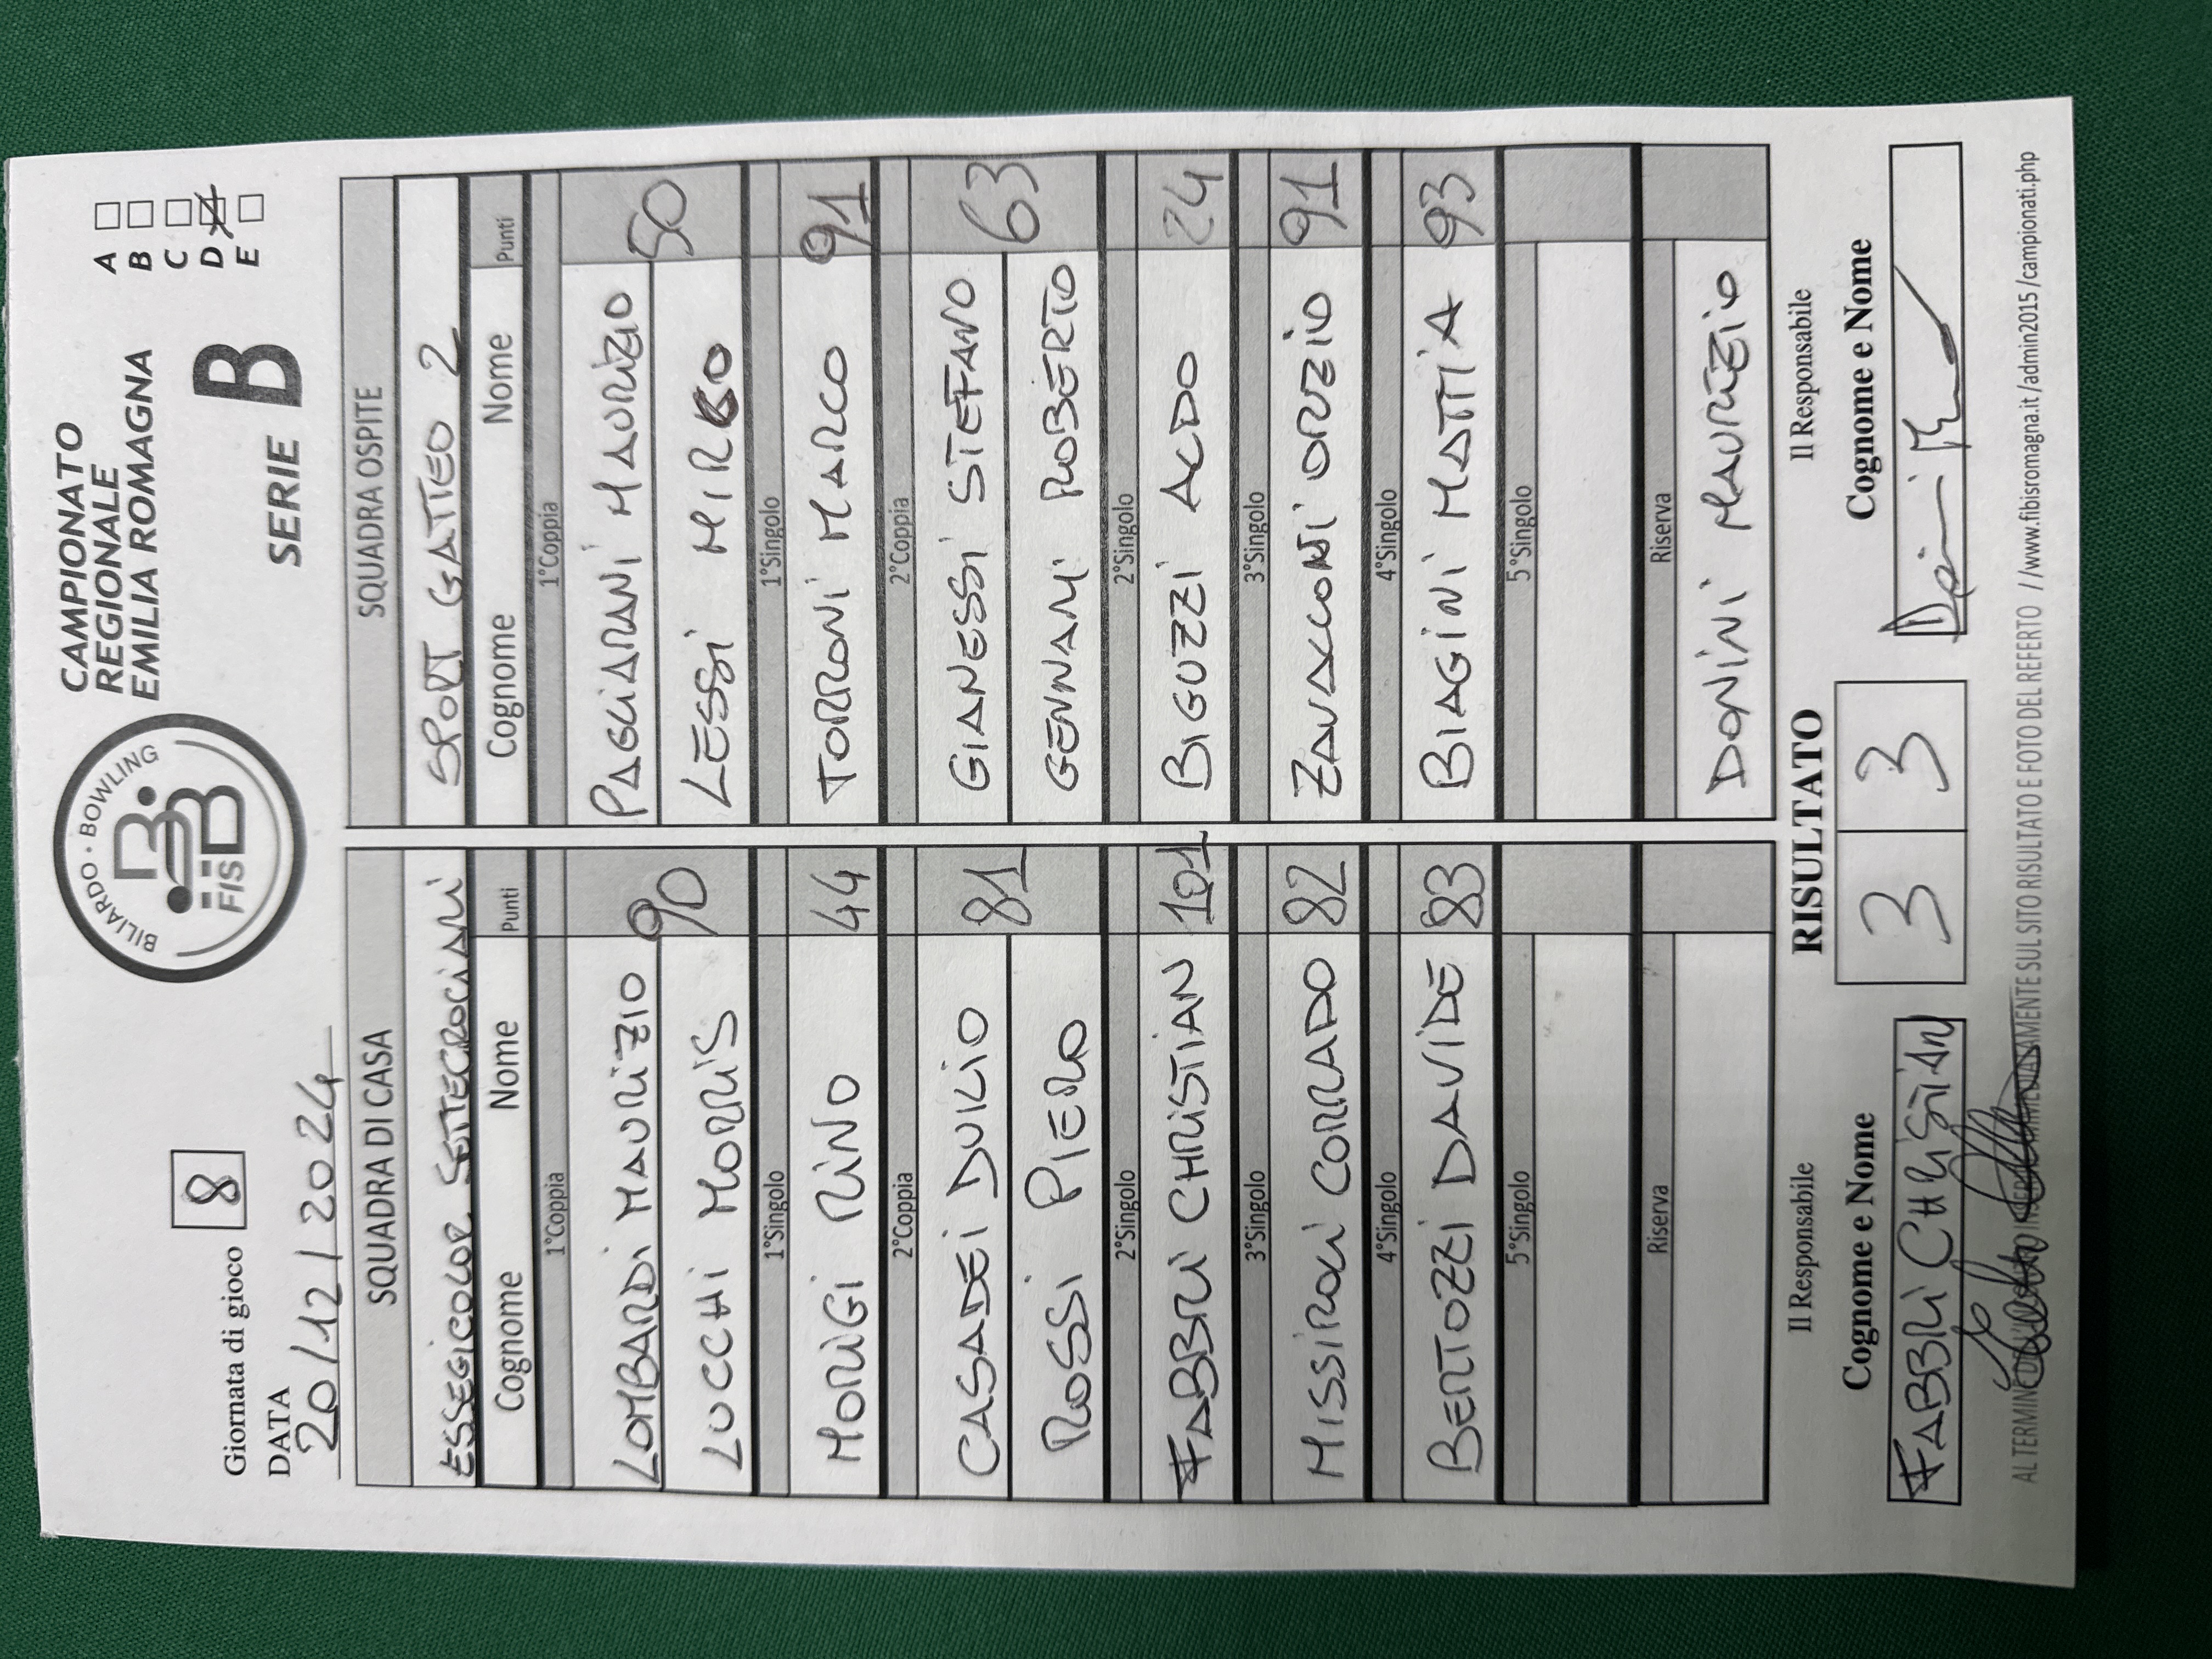 Giornata di gioco 8
DATA
20/12/2024
BILIARDO · BOWLING
FISBB
CAMPIONATO
REGIONALE
EMILIA ROMAGNA
SERIE B
A
B
C
D
E
SQUADRA DI CASA SQUADRA OSPITE
ESSEGICOLOR SETTECROCIARI SPORT GATTEO 2
Cognome Nome Punti Cognome Nome Punti
1°Coppia 1°Coppia
LOMBARDI MAURIZIO 90 PAGLIARANI MAURIZIO 50
LUCCHI MORRIS LESSI MIRKO
1°Singolo 1°Singolo
MORIGI RINO 44 TORRONI MARCO 91
2°Coppia 2°Coppia
CASADEI DUILIO 81 GIANESSI STEFANO 63
ROSSI PIERO GENNARI ROBERTO
2°Singolo 2°Singolo
FABBRI CHRISTIAN 101 BIGUZZI ALDO 24
3°Singolo 3°Singolo
MISSIROLI CORRADO 82 ZAVALLONI ORAZIO 91
4°Singolo 4°Singolo
BERTOZZI DAVIDE 83 BIAGINI MATTIA 93
5°Singolo 5°Singolo
Riserva Riserva
DONINI MAURIZIO
Il Responsabile RISULTATO Il Responsabile
Cognome e Nome 3 3 Cognome e Nome
FABBRI CHRISTIAN
AL TERMINE IMMEDIATAMENTE SUL SITO RISULTATO E FOTO DEL REFERTO //www.fibisromagna.it/admin2015/campionati.php